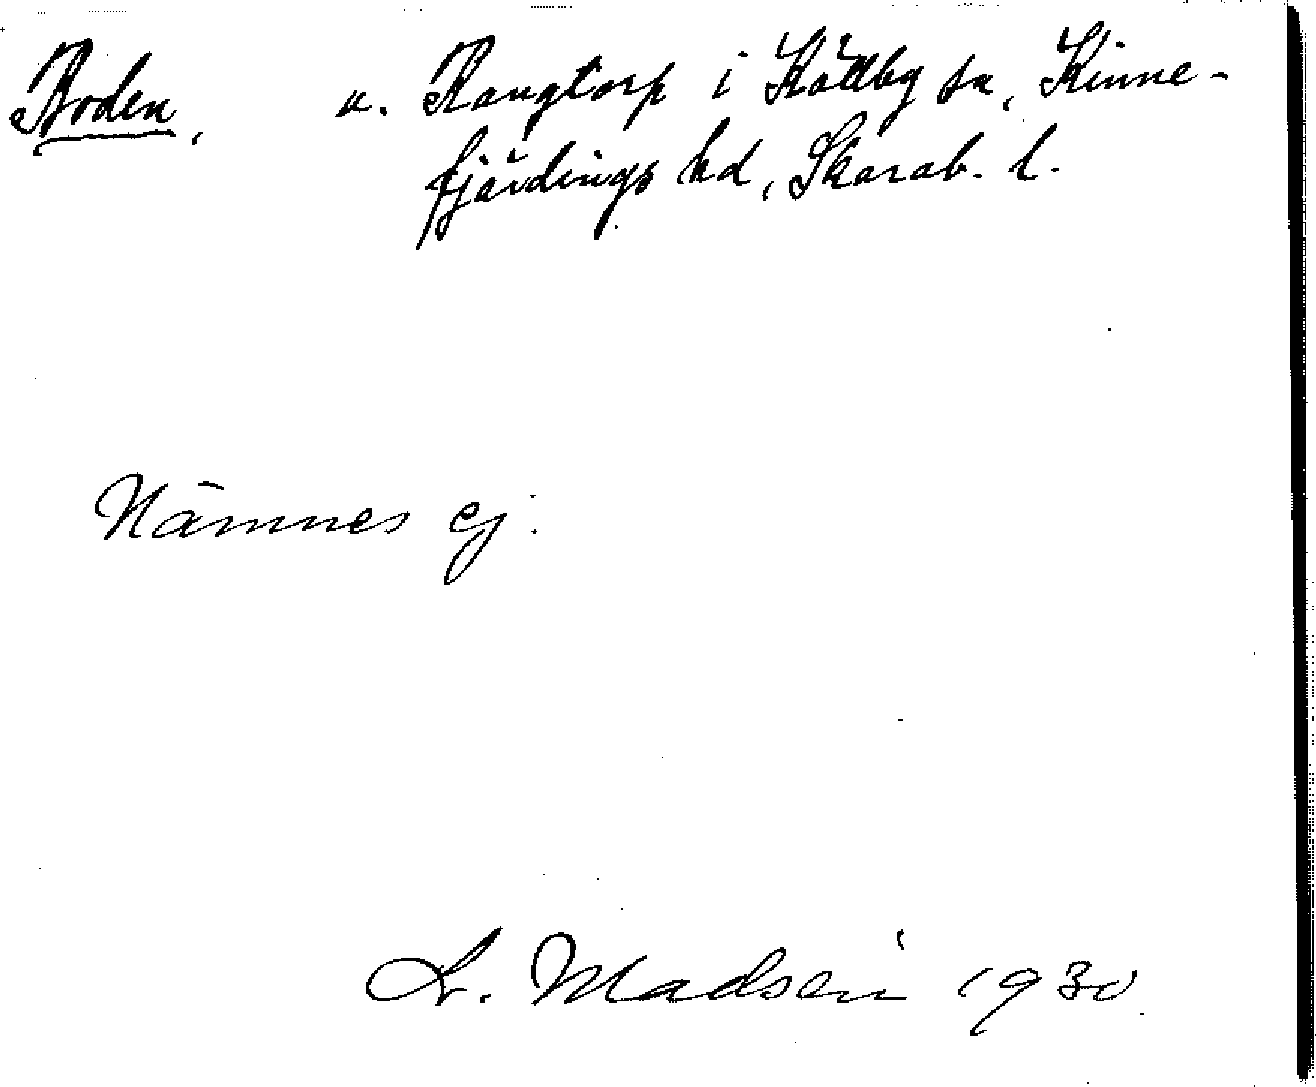 Boden, u. Rangtorp i Källby sn, Kinne-
fjärdings hd, Skarab. l.
Nämnes ej.
L. Madsén 1930